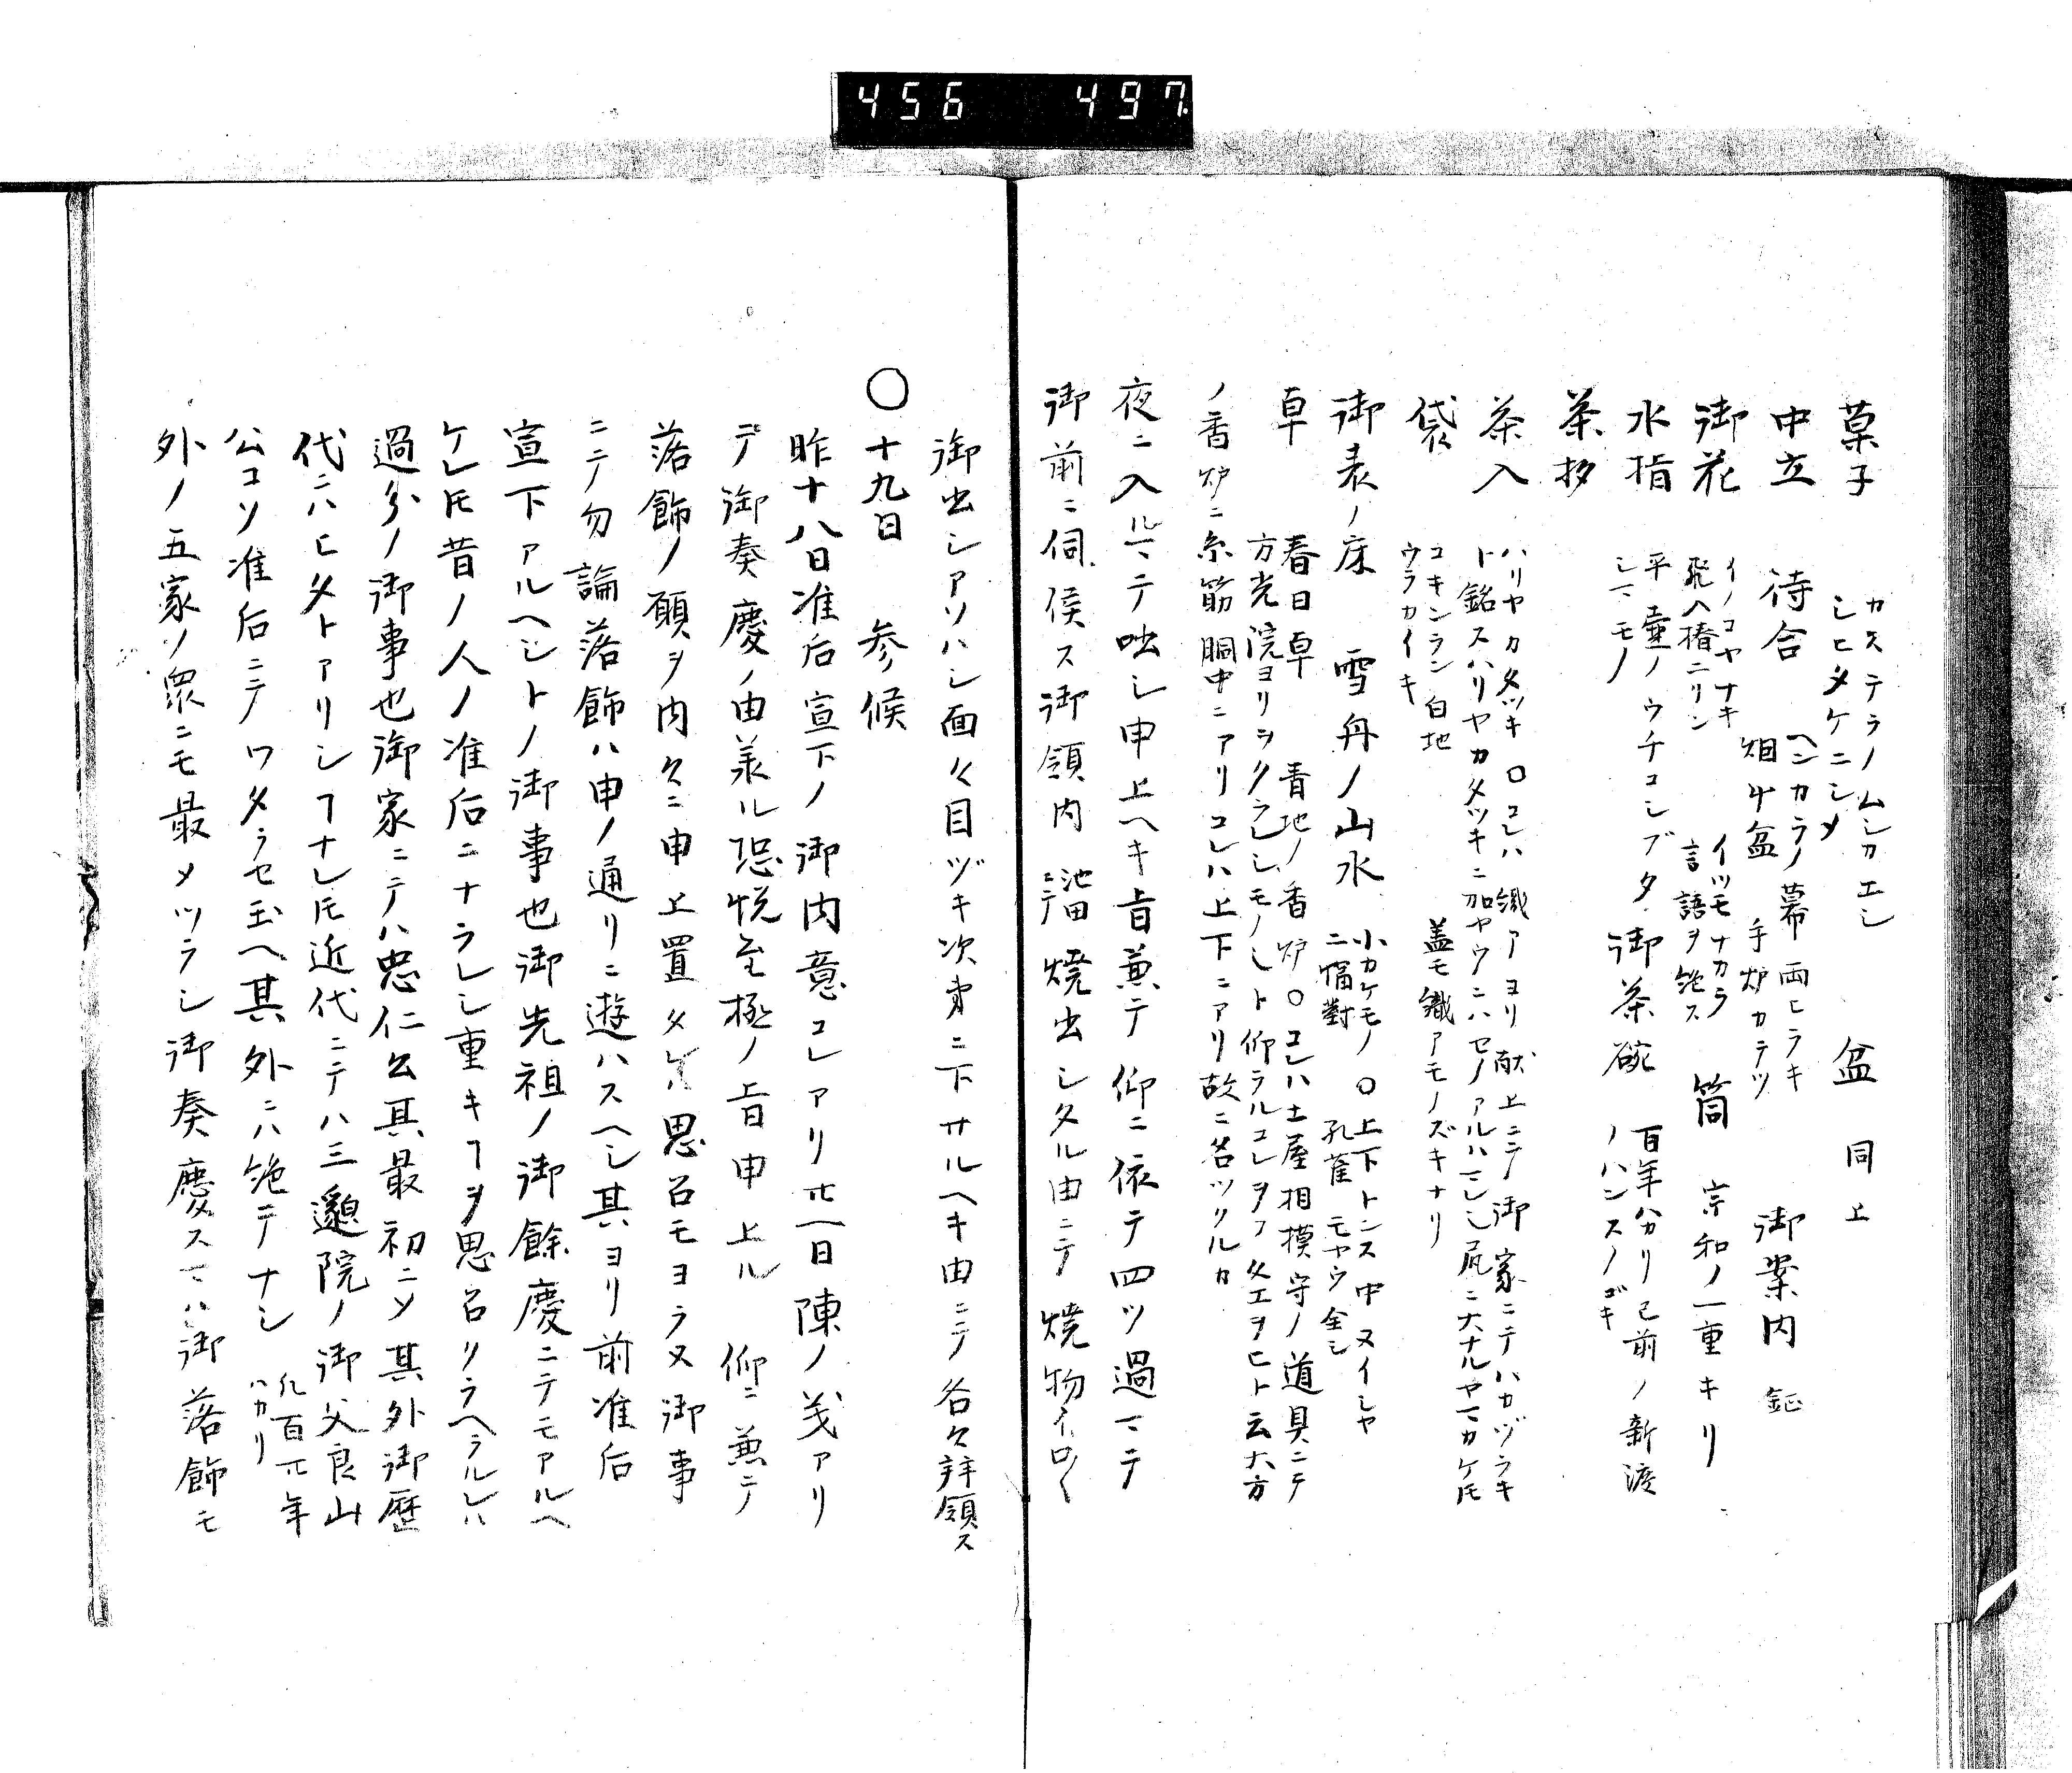 456 497
菓子 カステラノムシカエシ シヒタケニシメ 盆 同上
中立 待合 ヘンカラノ幕両ヒラキ 烟草盆 手炉カラテツ 御案内 鉦
御花 イノコヤナキ 飛入椿ニリン イツモナカラ 言語ヲ絶ス 筒 宗和ノ一重キリ
水指 平壷ノウチコシブタ シマモノ 御茶碗 百年ハカリ已前ノ新渡 ノハンスノゴキ
茶杉
茶入 ハリヤカタツキ 〇コレハ鐵アヨリ献上ニテ御家ニテハカヅラキ ト銘スハリヤカタツキニ加ヤウニハセノアルハマレ也尻ニ大ナルヤマカケ圧
袋 コキンラン白地 ウラカイキ 蓋モ鐵アモノズキナリ
御表ノ床 雪舟ノ山水 小カケモノ 二幅對 〇上下トンス中ヌイシヤ 孔雀 モヤウ金シ
卓 春日卓 青地ノ香炉〇コレハ土屋相摸守ノ道具ニテ 方光院ヨリヲクラレシモノ也ト仰ラルコレヲフクエヲヒト云大方
ノ香炉ニ糸筋胴中ニアリコレハ上下ニアリ故ニ名ツクルカ
夜ニ入ルマテ咄シ申上ヘキ旨兼テ仰ニ依テ四ツ過マテ
御前ニ伺候ス御領内 池田ニテ 燒出シタル由ニテ 燒物イロ〱
御出シアソハシ面々目ヅキ次第ニ下サルヘキ由ニテ各々拜領ス
〇十九日 参候
昨十八日准后宣下ノ御内意コレアリ廿一日陳ノ義アリ
テ御奏慶ノ由承ル恐悦至極ノ旨申上ル 仰ニ兼テ
落飾ノ願ヲ内々ニ申上置タレハ思召モヨラヌ御事
ニテ勿論落飾ハ申ノ通リニ遊ハスヘシ其ヨリ前准后
宣下アルヘシトノ御事也御先祖ノ御餘慶ニテモアルヘ
ケレ圧昔ノ人ノ准后ニナラレシ重キヿヲ思召リラヘラルレハ
過分ノ御事也御家ニテハ忠仁公其最初ニソ其外御歴
代ニハヒタトアリシヿナレ圧近代ニテハ三藐院ノ御父良山
公コソ准后ニテワタラセ玉ヘ其外ニハ絶テナシ 凡百年 ハカリ
外ノ五家ノ衆ニモ最メツラシ御奏慶スマハ御落飾モ